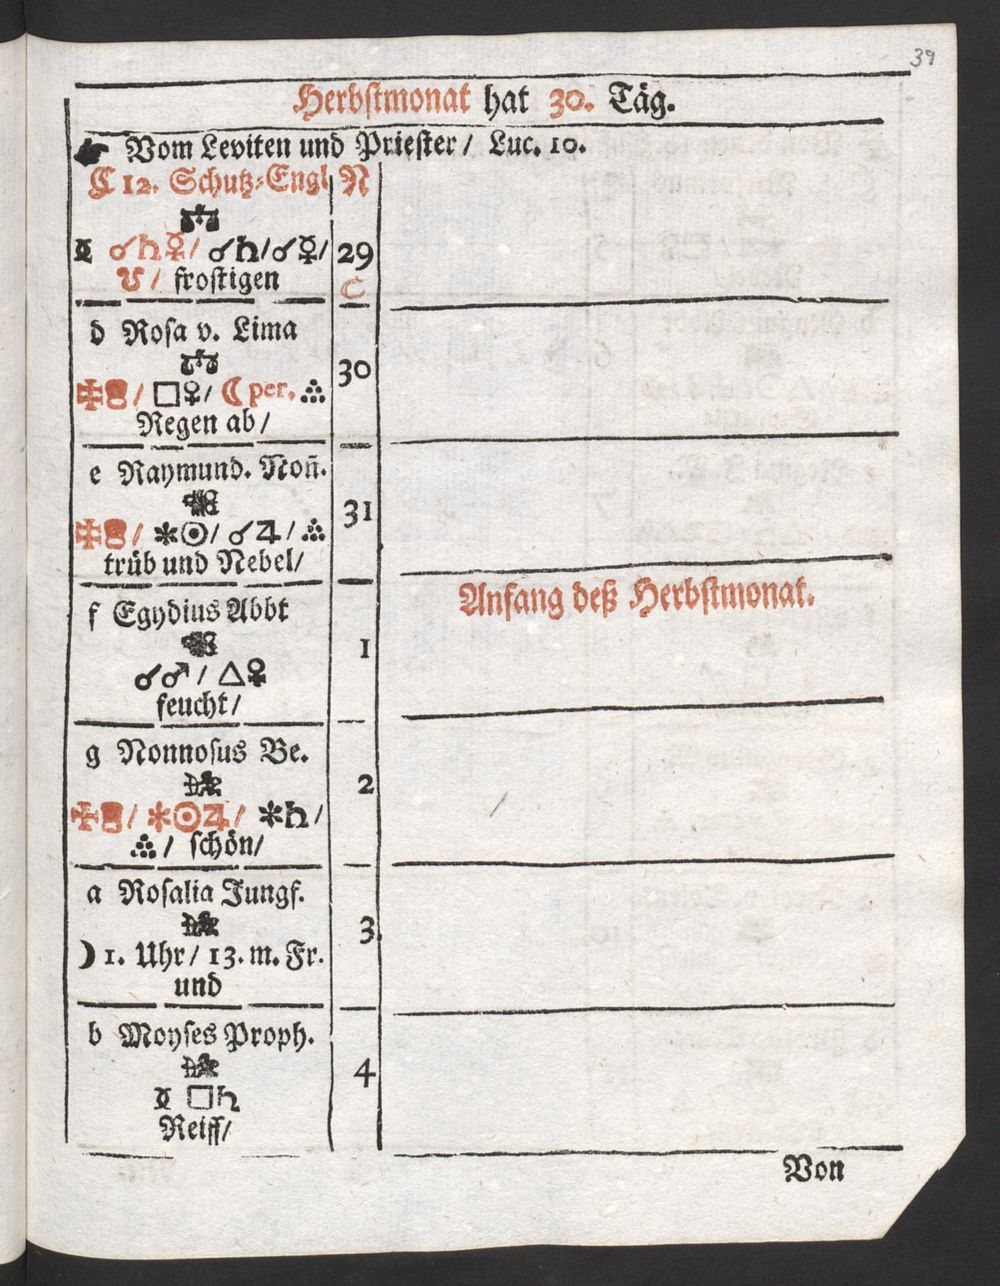 39
Herbstmonat hat 30. Täg.
☛ Vom Leviten und Priester / Luc. 10.
C 12. Schutz-Engl. N
♎
☌♄☿/ ☌♄/☌☿/ 29
☋ / frostigen C
d Rosa v. Lima
♎
□♀/ ☾ per. 30
Regen ab /
e Raymund. Noñ.
✱☉/ ☌♃ / 31
trüb und Nebel/
Anfang deß Herbstmonat.
f Egydius Abbt
1
☌♂ / △♀
feucht /
g Nonnosus Be.
2
✱☉♃/ ✱♄/
/ schön/
a Rosalia Jungf.
3.
☽ 1. Uhr / 13. m. Fr.
und
b Moyses Proph.
4
□♄
Reiff/
Von